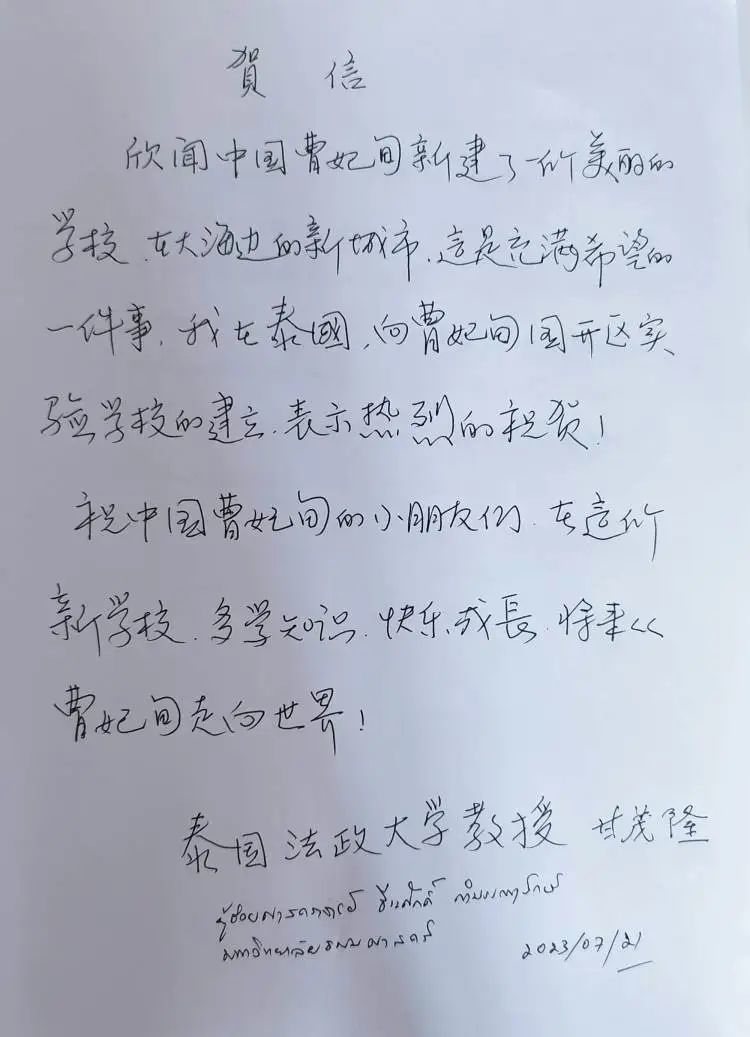 賀 信
欣闻中国曹妃甸新建了一所美丽的
学校.在大海边的新城市.這是充满希望的
一件事.我在泰國,向曹妃甸国开区实
验学校的建立.表示热烈的祝贺!
祝中国曹妃甸的小朋友们.在這所
新学校.多学知识.快乐成長.将来从
曹妃甸走向世界!
泰国法政大学教授 甘茂隆
ผู้ช่วยศาสตราจารย์ ธีรศักดิ์
มหาวิทยาลัยธรรมศาสตร์ 2023/07/21